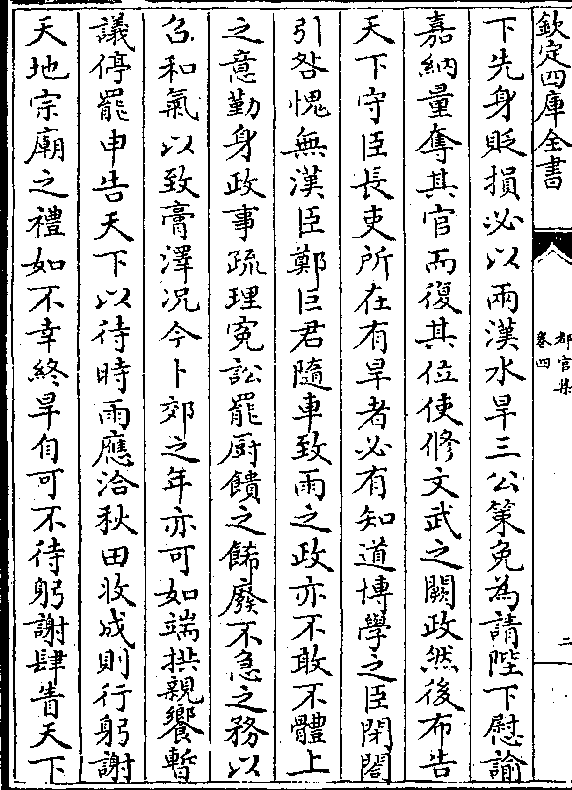 欽定四庫全書
都官集
卷四
二
下先身貶損必以兩漢水旱三公策免為請陛下慰諭
嘉納量奪其官而復其位使修文武之闕政然後布告
天下守臣長吏所在有旱者必有知道博學之臣閉閤
引咎愧無漢臣鄭巨君隨車致雨之政亦不敢不體上
之意勤身政事疏理寃訟罷厨饋之餙廢不急之務以
召和氣以致膏澤况今卜郊之年亦可如端拱親饗暫
議停罷申告天下以待時雨應洽秋田收成則行躬謝
天地宗廟之禮如不幸終旱自可不待躬謝肆眚天下